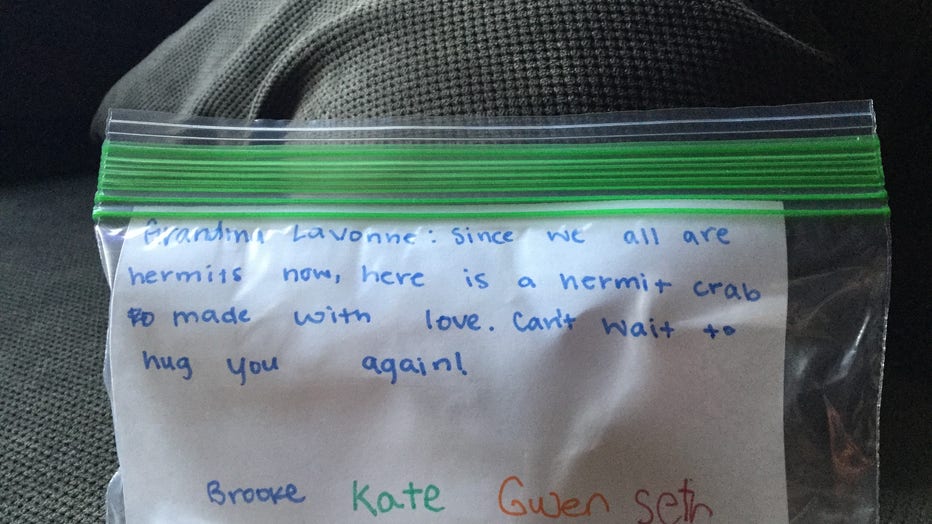 Grandma Lavonne: since we all are
hermits now, here is a hermit crab
made with love. Can't wait to
hug you again!
Brooke Kate Gwen Seth